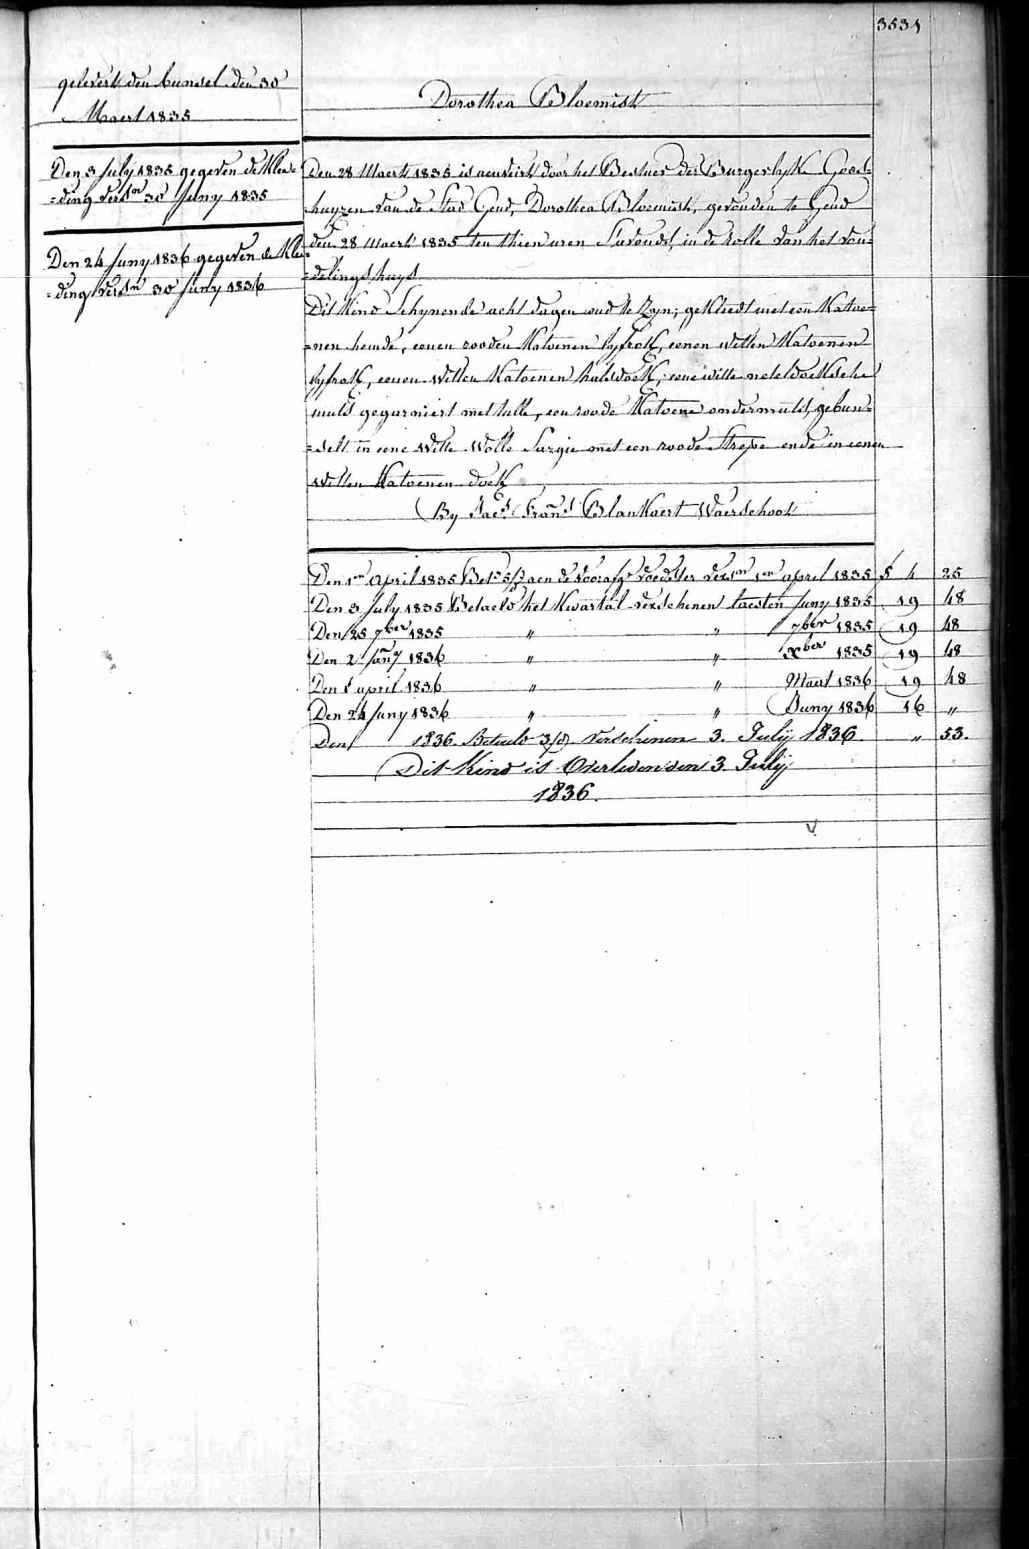 3531
gelevert den bunsel den 30
Maert 1835
Den 3 July 1835 gegeven de Klee=
=ding vers.en 30 Juny 1835
Den 24 Juny 1836 gegeven de Klee=
=ding vers.en 30 Juny 1836
Dorothea Bloemist
Den 28 Maert 1835 is aenveird door het Bestier der Burgerlyke Gods=
huyzen van de Stad Gend, Dorothea Bloemist, gevonden te Gend
den 28 Maert 1835 ten thien uren S'avonds, in de rolle van het von=
=delingshuys
Dit Kind Schynende acht dagen oud te Zyn; gekleedt met een Katoe=
=nen hemde, eenen rooden Katoenen lyfrok, eenen witten Katoenen
lyfrok, eenen witten Katoenen halsdoek, eene witte neteldoeksche
muts gegarniert met tulle, een roode Katoene ondermuts, gebun=
=selt in eene Witte Wolle Sargie met een roode Strepe ende in eenen
witten Katoenen doek
By Jac.s Fran.s Blankaert Waerschoot
Den 1en April 1835 Bet.d aen de voorafg.e voedster vers.en 1en april 1835 4 25
Den 3 July 1835 Betaeld het Kwartal verschenen laesten Juny 1835 19 48
Den 25 7ber 1835 " " 7ber 1835 19 48
Den 2 Jany 1836 " " Xber 1835 19 48
Den 1 april 1836 " " Maert 1836 19 48
Den 24 Juny 1836 " " Juny 1836 16 "
Den 1836 Betaeld 3/d verschenen 3. Julij 1836 " 53.
Dit Kind is Overleden den 3. Julij
1836.